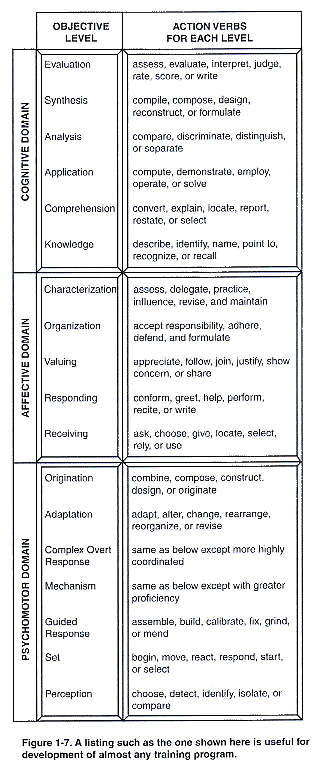 OBJECTIVE
LEVEL
ACTION VERBS
FOR EACH LEVEL
COGNITIVE DOMAIN
Evaluation
assess, evaluate, interpret, judge,
rate, score, or write
Synthesis
compile, compose, design,
reconstruct, or formulate
Analysis
compare, discriminate, distinguish,
or separate
Application
compute, demonstrate, employ,
operate, or solve
Comprehension
convert, explain, locate, report,
restate, or select
Knowledge
describe, identify, name, point to,
recognize, or recall
AFFECTIVE DOMAIN
Characterization
assess, delegate, practice,
influence, revise, and maintain
Organization
accept responsibility, adhere,
defend, and formulate
Valuing
appreciate, follow, join, justify, show
concern, or share
Responding
conform, greet, help, perform,
recite, or write
Receiving
ask, choose, give, locate, select,
rely, or use
PSYCHOMOTOR DOMAIN
Origination
combine, compose, construct,
design, or originate
Adaptation
adapt, alter, change, rearrange,
reorganize, or revise
Complex Overt
Response
same as below except more highly
coordinated
Mechanism
same as below except with greater
proficiency
Guided
Response
assemble, build, calibrate, fix, grind,
or mend
Set
begin, move, react, respond, start,
or select
Perception
choose, detect, identify, isolate, or
compare
Figure 1-7. A listing such as the one shown here is useful for
development of almost any training program.